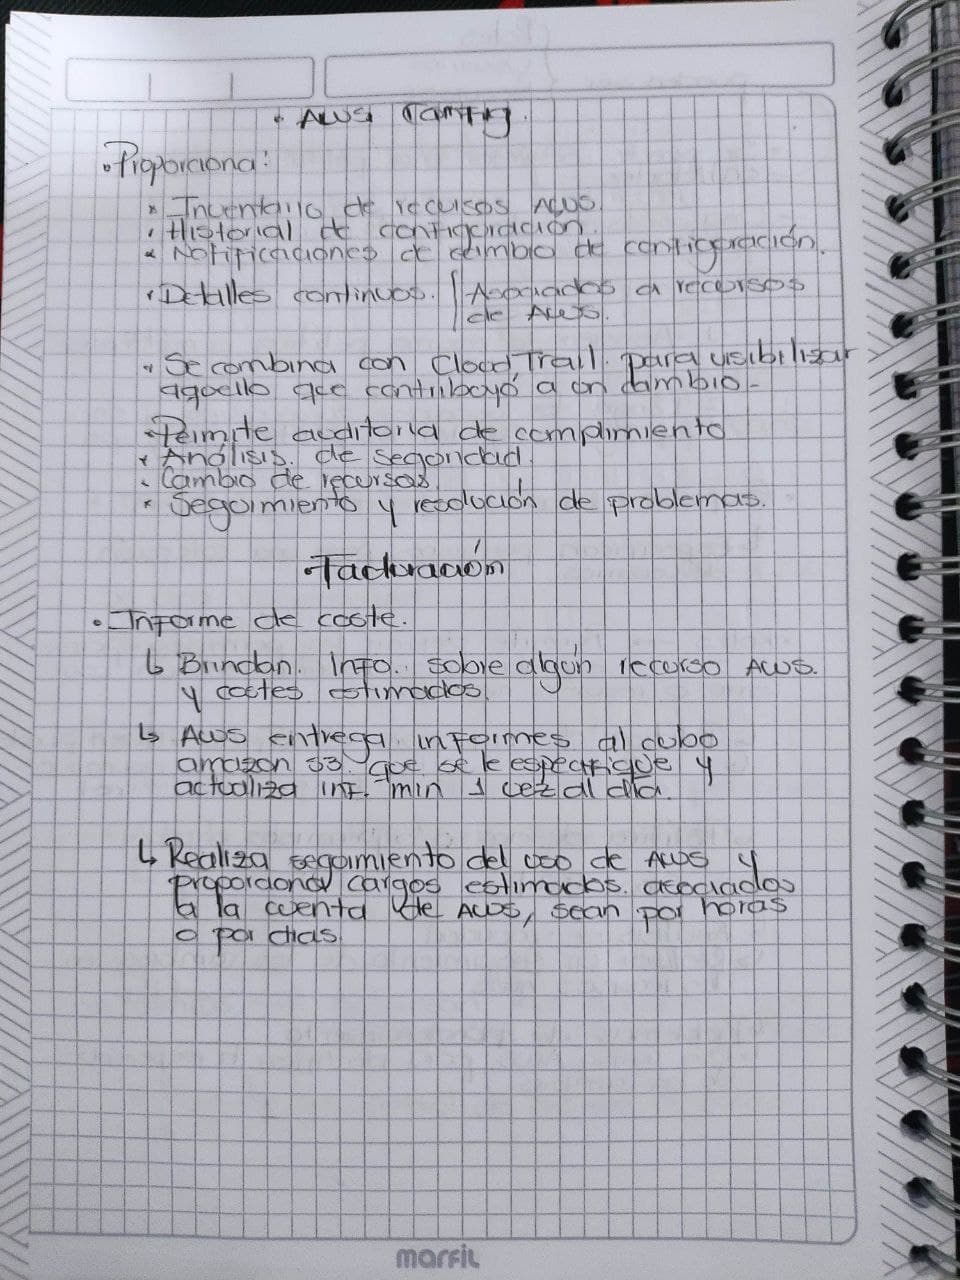 • AWS Config.
• Proporciona:
* Inventario de recursos AWS.
• Historial de configuración.
* Notificaciones de cambio de configuración.
• Detalles continuos. | Asociados a recursos
de AWS.
• Se combina con Cloud Trail. para visibilizar
aquello que contribuyó a un cambio -
• Permite auditoria de complimiento
* Análisis. de seguridad.
• Cambio de recursos.
* Seguimiento y resolución de problemas.
• Facturación
• Informe de coste.
↳ Brindan. Info. sobre algún recurso AWS.
y costes estimados.
↳ AWS entrega informes al cubo
amazon S3. que se le especifique y
actualiza inf. min 1 vez al día.
↳ Realiza seguimiento del uso de AWS y
proporciona cargos estimados. asociados
a la cuenta de AWS, sean por horas
o por dias.
marfil